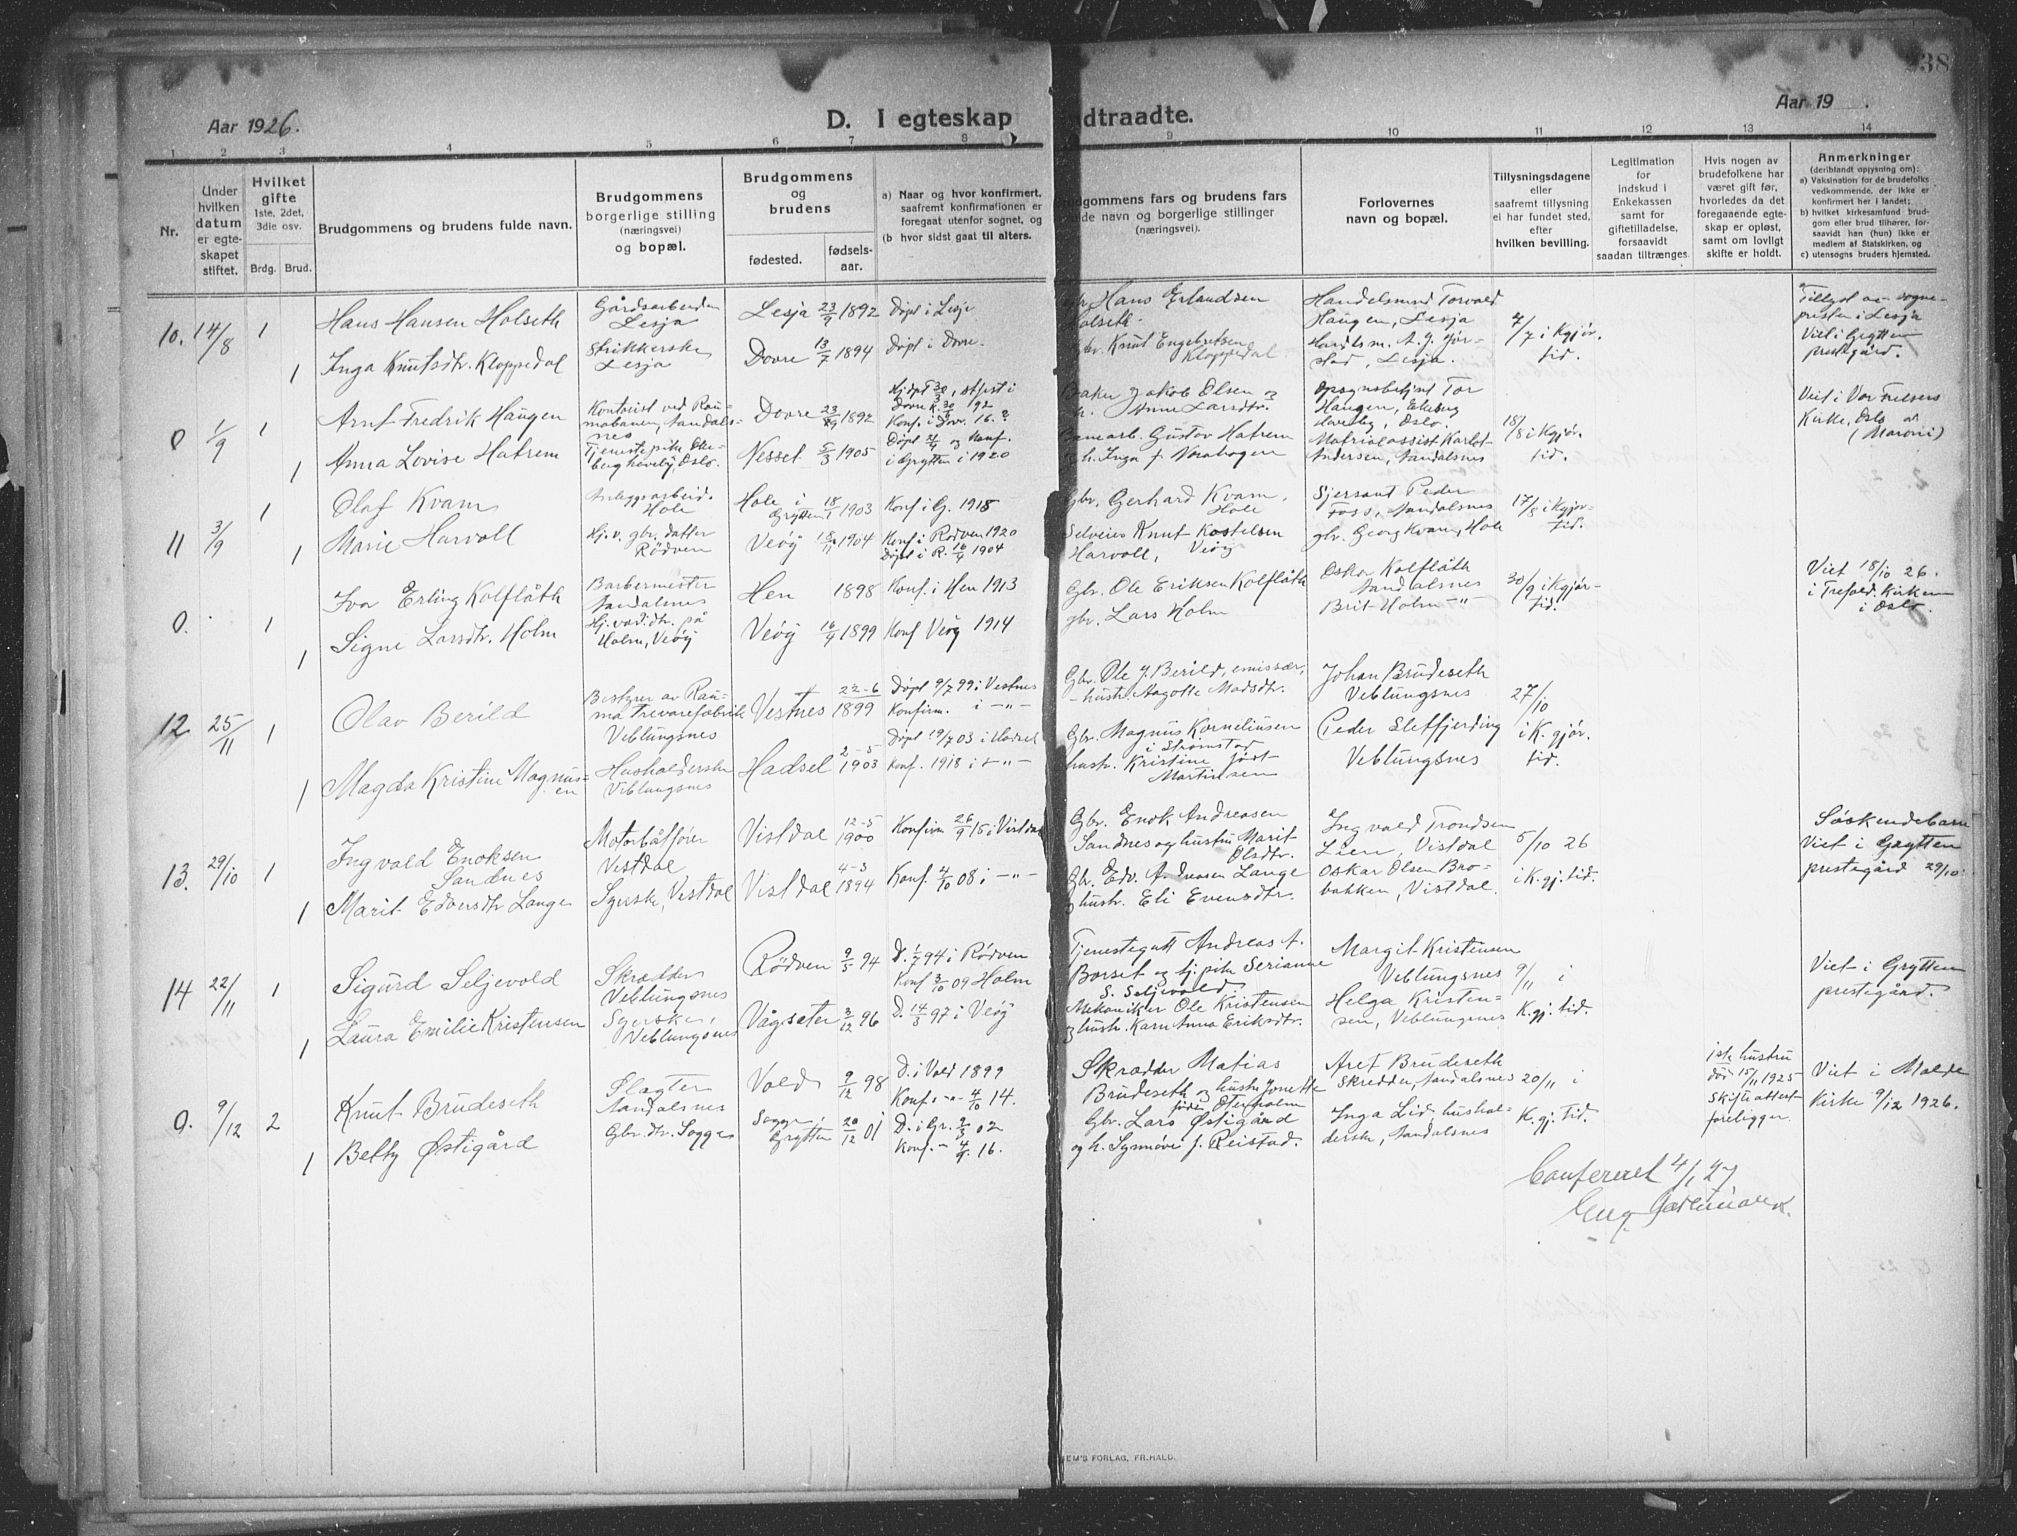 38
Aar 1926.
D. I egteskap
dtraadte.
Aar 19 .
1 2 3 4 5 6 7 8 9 10 11 12 13 14
Nr.
Under hvilken datum er egteskapet stiftet.
Hvilket gifte 1ste, 2det, 3die osv.
Brdg. Brud.
Brudgommens og brudens fulde navn.
Brudgommens borgerlige stilling (næringsvei) og bopæl.
Brudgommens og brudens
fødested.
fødselsaar.
a) Naar og hvor konfirmert, saafremt konfirmationen er foregaat utenfor sognet, og
(b hvor sidst gaat til alters.
udgommens fars og brudens fars
fulde navn og borgerlige stillinger
(næringsvei).
Forlovernes navn og bopæl.
Tillysningsdagene eller saafremt tillysning ei har fundet sted, efter hvilken bevilling.
Legitimation for indskud i Enkekassen samt for giftetilladelse, forsaavidt saadan tiltrænges.
Hvis nogen av brudefolkene har været gift før, hvorledes da det foregaaende egteskap er opløst, samt om lovligt skifte er holdt.
Anmerkninger
(deriblandt opysning om):
a) Vaksination for de brudefolks vedkommende, der ikke er konfirmert her i landet;
b) hvilket kirkesamfund brudgom eller brud tilhører, forsaavidt han (hun) ikke er medlem af Statskirken, og
c) utensogns bruders hjemsted.
10. 14/8 1
Hans Hansen Holseth
Gårdsarbeider
Lesja
Lesja 23/9 1892
Døpt i Lesja
Hans Erlandsen
Holseth.
Handelsmnd Torvald
Haugen, Lesja
7/7 i Kgjør.
tid.
Tillyst av sogne-
presten i Lesja
Viet i Grytten
prestegård.
1
Inga Knutsdtr. Kloppedal
Strikkerske
Lesja
Dovre 13/7 1894
Døpt i Dovre.
Gbr. Knut Engebretsen
Kloppedal
Handelsm. A. J. Jør-
stad, Lesja.
0 1/9 1
Arnt Fredrik Haugen
Kontorist ved Rau-
mabanen, Aandals-
nes
Dovre 23/9 1892
Konf. i Dov. 16.?
Baker Jakob Olsen og
h. Anne Larsdtr.
Opsynsbetjent Tor
Haugen, Ekeberg
Haveby, Oslo.
18/8 i Kgjør.
tid.
Viet i Vor Frelsers
Kirke, Oslo av
(Maroni)
1
Anna Lovise Hatrem
Tjenestepike Eke-
berg haveby Oslo.
Nesset 5/3 1905
i Grytten i 1920
Banearb. Gustav Hatrem
og h. Inga f. Norahagen
Matrialassist Karlot
Andersen, Aandalsnes
11 3/9 1
Olaf Kvam
Anleggsarbeid.
Hole
Hole i
Grytten 18/1 1903
Konf i G. 1918
Gbr. Gerhard Kvam,
Hole
Sjersant Peder
Foss, Aandalsnes
17/8 i Kgjør-
tid.
1
Marie Harvoll
Hj.v. gbr. datter
Rødven
Veøy 18/11 1904
Konf i Rødven 1920
Døpt i R. 18/9 1904
Selveier Knut Kostelsen
Harvoll, Veøy
gbr. Georg Kvam, Hole
0. 1
Ivar Erling Kolflåth
Barbermester
Aandalsnes
Hen 1898
Konf. i Hen 1913
Gbr. Ole Eriksen Kolflåth
Oskar Kolflåth
Aandalsnes
30/9 i Kgjør-
tid.
Viet 18/10 26.
i Trefold. Kirken
i Oslo.
1
Signe Larsdtr. Holm
Hj.vær.dtr. på
Holm, Veøy
Veøy 16/9 1899
Konf Veøy 1914
gbr. Lars Holm
Brit Holm -"-
12 25/11 1
Olav Berild
Bestyrer av Rau-
ma Trevarefabrik
Veblungsnes
Vestnes 22-6 1899
Døpt 9/7 99 i Vestnes
Konfirm. i -"-
Gbr. Ole J. Berild, emissær,
hustr. Aagotte Madsdtr.
Johan Brudeseth
Veblungsnes
27/10
i K. gjør.
tid.
1
Magda Kristine Magnus-
en
Husholderske
Veblungsnes
Hadsel 2-5 1903
Døpt 19/7 03 i Hadsel
Konf. 1918 i -"-
Gbr. Magnus Korneliusen
i Strømstad
hustr. Kristine født
Martinsen
Peder Sletfjerding
Veblungsnes
13. 29/10 1
Ingvald Enoksen
Sandnes
Motorbåtfører
Vestdal
Vistdal 12-5 1900
Konfirm 26/9 15 i Vistdal
Gbr. Enok Andreasen
Sandnes og hustru Marit
Olsdtr.
Ingvald Trondsen
Lien, Vistdal
5/10 26
i K. gj. tid.
Søskendebarn
Viet i Grytten
prestegård 29/10.
1
Marit Edvardsdtr Lange
Syerske, Vestdal
Vistdal 4-3 1894
Konf. 4/10 08 i -"-
Gbr. Edv. Andreasen Lange
og hustr. Eli Evensdtr.
Oskar Olsen Bro-
bakken, Vistdal
14 22/11 1
Sigurd Seljevold
Skrædder
Veblungsnes
Rødven 9/5 94
D. 1/7 94 i Rødven
Konf 3/10 09 Holm
Tjenestegutt Andreas A.
Borset og tj. pike Serianne
S. Seljevold.
Margit Kristensen
Veblungsnes
9/11 i
K. gj. tid.
Viet i Grytten
prestegård.
1
Laura Emilie Kristensen
Syerske,
Veblungsnes
Vågsæter 3/12 96
D. 14/3 97 i Veøy
Mekaniker Ole Kristensen
og hustr. Karn Anna Eriksdtr.
Helga Kristen-
sen, Veblungsnes
0. 9/12 2
Knut Brudeseth
Slagter
Aandalsnes
Vold 9/12 98
D. i Vold 1899
Konf. -"- 4/10 14.
Skrædder Matias
Brudeseth og hustr. Jonette
født Oterholm
Aret Brudeseth
Skredder, Aandalsnes
20/11 i
K. gj. tid.
1ste hustru
død 15/11 1925
Skifteattest
foreligger.
Viet i Molde
Kirke 9/12 1926.
1
Betty Østigård
Gbr.dtr. Sogge
Sogge i
Grytten 20/12 01
D. i Gr. 2/3 02
Konf. -"- 4/9. 16.
Gbr. Lars Østigård
og h. Synnøve f. Reistad.
Inga Lid, hushol-
derske, Aandalsnes
Confereret 4/1 27
EM'S FORLAG, FR.HALD.